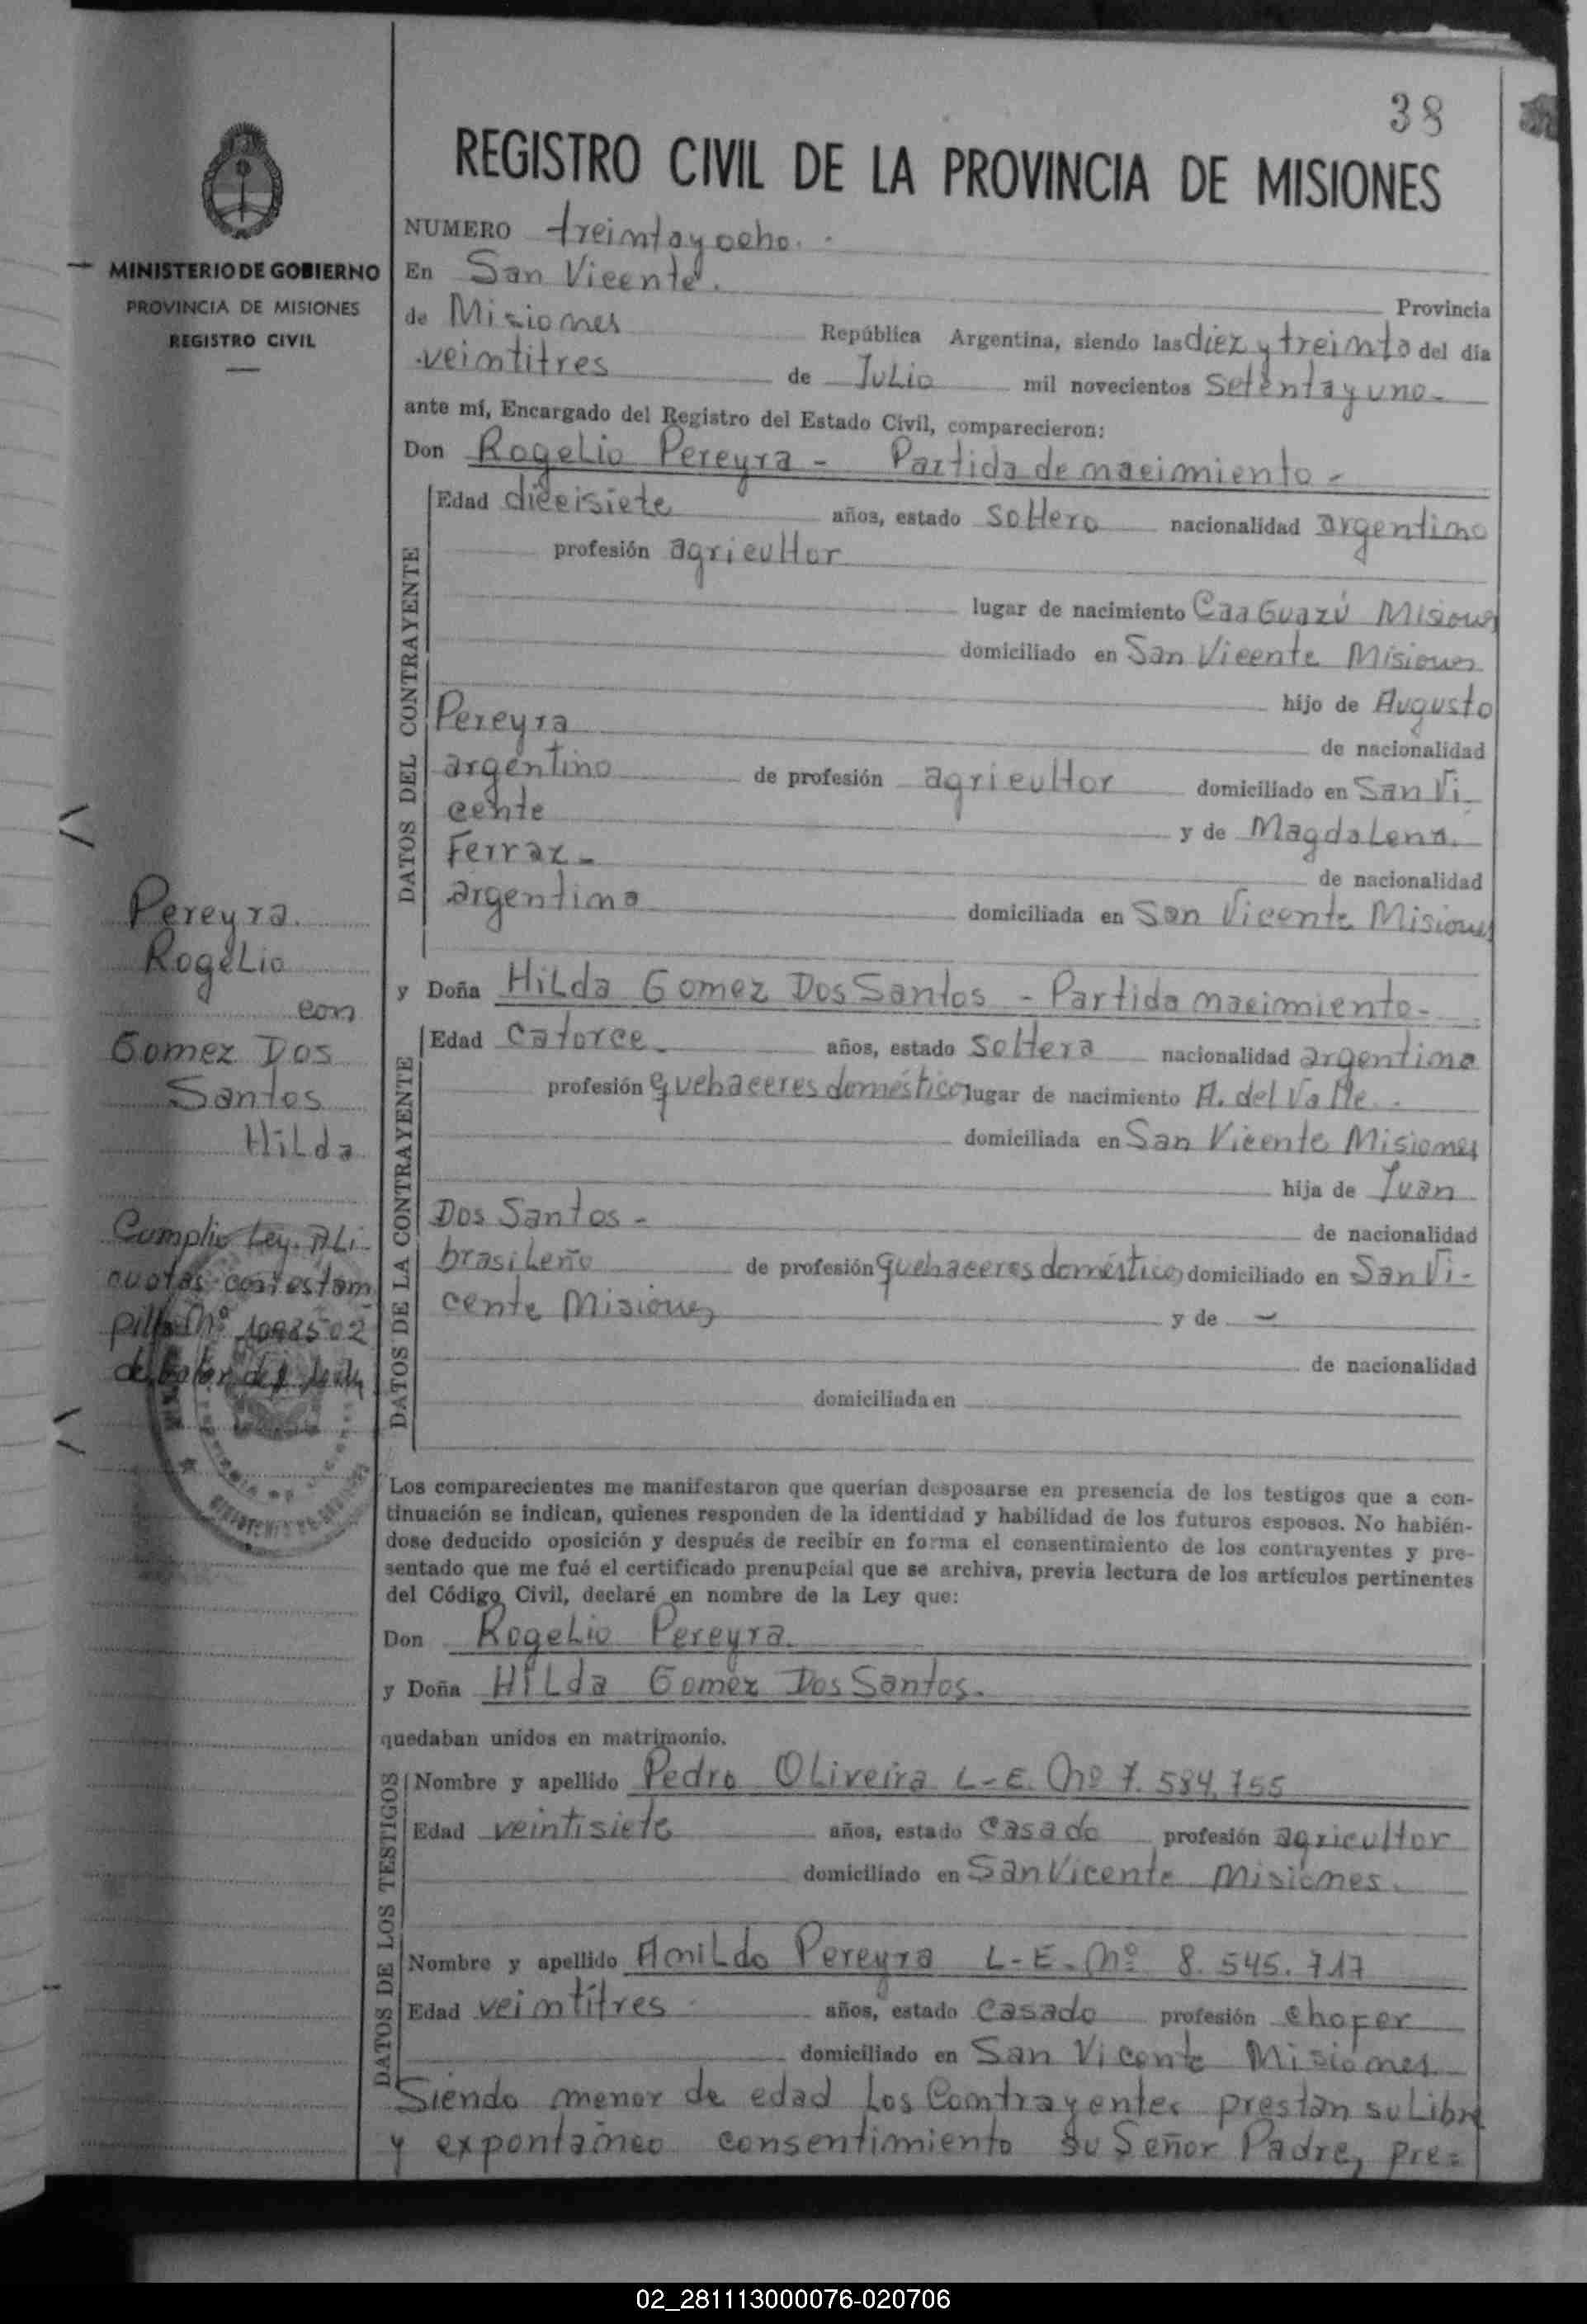 38
REGISTRO CIVIL DE LA PROVINCIA DE MISIONES
MINISTERIO DE GOBIERNO
PROVINCIA DE MISIONES
REGISTRO CIVIL
NUMERO treinta y ocho.
En San Vicente.
Provincia
de Misiones República Argentina, siendo las diez y treinta del día
veintitres de Julio mil novecientos setenta y uno.
ante mí, Encargado del Registro del Estado Civil, comparecieron:
Don Rogelio Pereyra - Partida de nacimiento -
DATOS DEL CONTRAYENTE
Edad dieeisiete años, estado soltero nacionalidad argentino
profesión agricultor
lugar de nacimiento Caa Guazú Misiones
domiciliado en San Vicente Misiones
hijo de Augusto
Pereyra
de nacionalidad
argentino de profesión agricultor domiciliado en San Vi-
cente y de Magdalena
Ferraz -
de nacionalidad
argentina domiciliada en San Vicente Misiones
y Doña Hilda Gomez Dos Santos - Partida nacimiento -
DATOS DE LA CONTRAYENTE
Edad catorce años, estado soltera nacionalidad argentina
profesión quehaceres domésticos lugar de nacimiento A. del Valle.
domiciliada en San Vicente Misiones
hija de Juan
Dos Santos -
de nacionalidad
brasileño de profesión quehaceres domésticos domiciliado en San Vi-
cente Misiones y de -
de nacionalidad
domiciliada en
Pereyra
Rogelio
con
Gomez Dos
Santos
Hilda
Cumplio Ley. Ali
cuotas con estam
pilla Nº
Los comparecientes me manifestaron que querían desposarse en presencia de los testigos que a con-
tinuación se indican, quienes responden de la identidad y habilidad de los futuros esposos. No habién-
dose deducido oposición y después de recibir en forma el consentimiento de los contrayentes y pre-
sentado que me fué el certificado prenupcial que se archiva, previa lectura de los artículos pertinentes
del Código Civil, declaré en nombre de la Ley que:
Don Rogelio Pereyra.
y Doña Hilda Gomez Dos Santos.
quedaban unidos en matrimonio.
DATOS DE LOS TESTIGOS
Nombre y apellido Pedro Oliveira L-E. Nº 7.584.755
Edad veintisiete años, estado casado profesión agricultor
domiciliado en San Vicente Misiones.
Nombre y apellido Anildo Pereyra L-E. Nº 8.545.717
Edad veintitres años, estado casado profesión chofer
domiciliado en San Vicente Misiones
Siendo menor de edad los Contrayentes prestan su Libre
y expontáneo consentimiento su Señor Padre, pre=
02_281113000076-020706